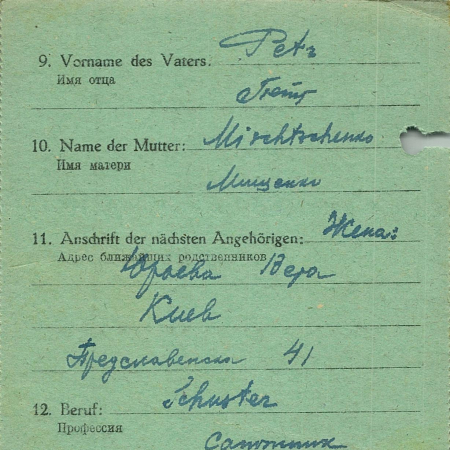 9. Vorname des Vaters: Petr
Имя отца
Петр
10. Name der Mutter: Mischtschenko
Имя матери
Мищенко
11. Anschrift der nächsten Angehörigen: Жена:
Адрес ближайших родственников
Юрьева Вера
Киев
Предславенская 41
12. Beruf: Schuster
Профессия
Сапожник